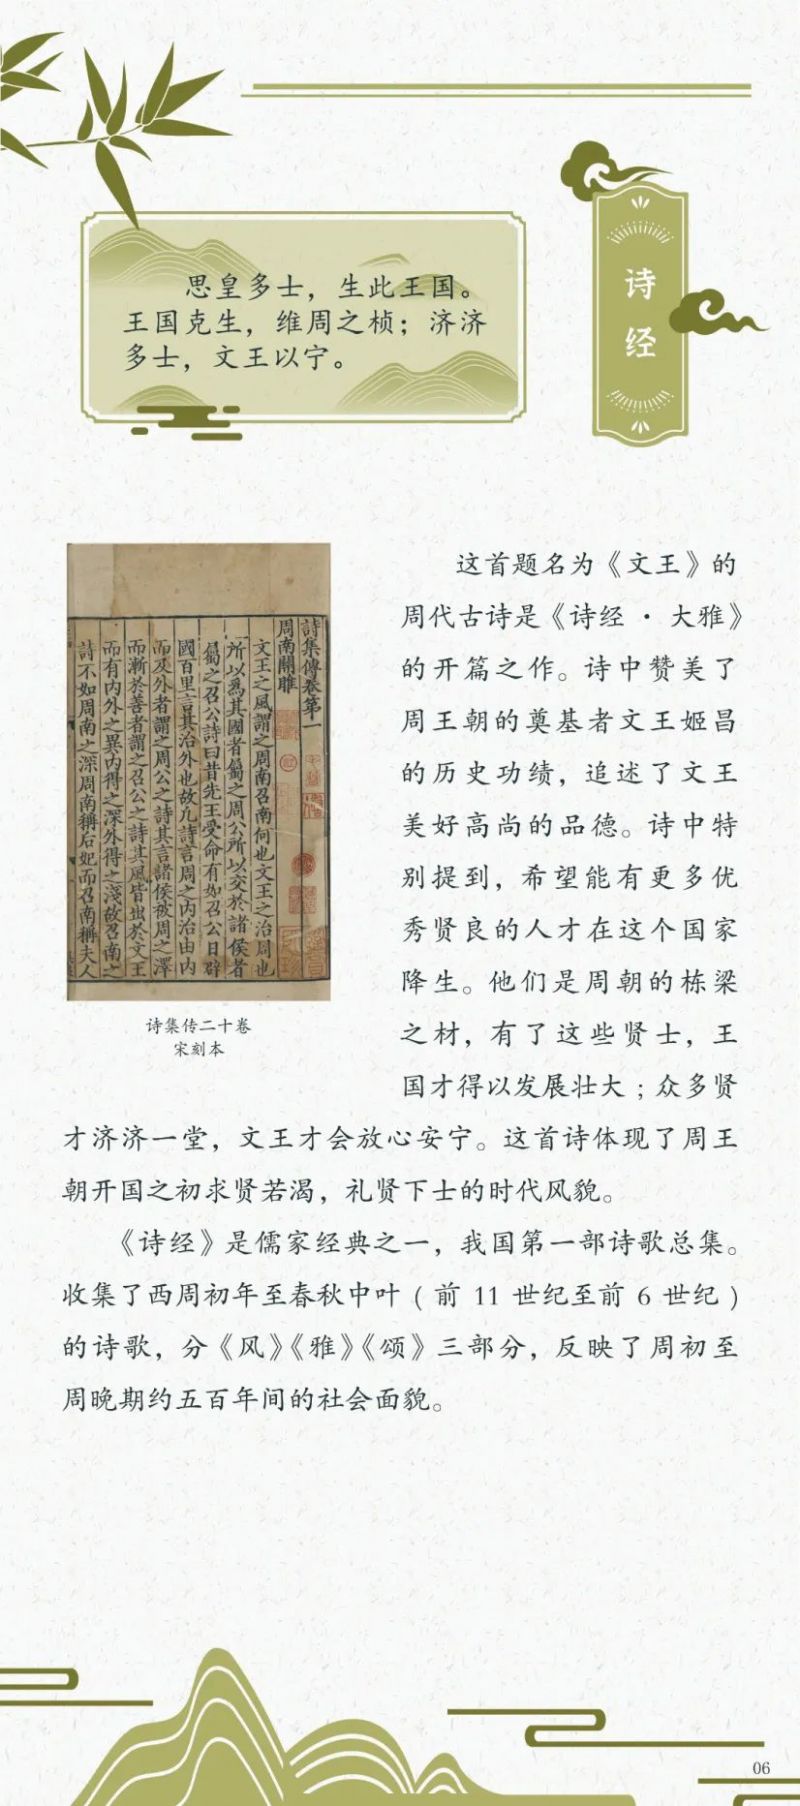 思皇多士，生此王国。
王国克生，维周之桢；济济
多士，文王以宁。
诗经
詩集傳卷第一
周南關雎
文王之風謂之周南召南何也文王之治周也
所以爲其國者屬之周公所以交於諸侯者
屬之召公詩曰昔先王受命有如召公日辟
國百里言其治外也故凡詩言周之内治由内
而及外者謂之周公之詩其言諸侯被周之澤
而漸於善者謂之召公之詩其風皆出於文王
而有内外之異内得之深外得之淺故召南之
詩不如周南之深周南稱后妃而召南稱夫人
诗集传二十卷
宋刻本
这首题名为《文王》的
周代古诗是《诗经·大雅》
的开篇之作。诗中赞美了
周王朝的奠基者文王姬昌
的历史功绩，追述了文王
美好高尚的品德。诗中特
别提到，希望能有更多优
秀贤良的人才在这个国家
降生。他们是周朝的栋梁
之材，有了这些贤士，王
国才得以发展壮大；众多贤
才济济一堂，文王才会放心安宁。这首诗体现了周王
朝开国之初求贤若渴，礼贤下士的时代风貌。
《诗经》是儒家经典之一，我国第一部诗歌总集。
收集了西周初年至春秋中叶（前 11 世纪至前 6 世纪）
的诗歌，分《风》《雅》《颂》三部分，反映了周初至
周晚期约五百年间的社会面貌。
06